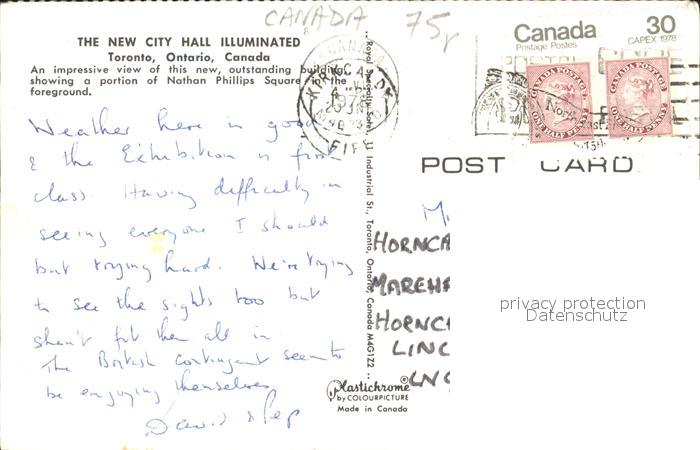 CANADA 75p
THE NEW CITY HALL ILLUMINATED
Toronto, Ontario, Canada
An impressive view of this new, outstanding building,
showing a portion of Nathan Phillips Square in the
foreground.
Weather here is good
& the Exhibition is first
class. Having difficulty in
seeing everyone I should
but trying hard. We're trying
to see the sights too but
shan't fit them all in.
The British contingent seem to
be enjoying themselves
David & Pep
Royal Specialty Sales, Industrial St., Toronto, Ontario, Canada M4G1Z2
Plastichrome®
by COLOURPICTURE
Made in Canada
KIRKCALDY
FIFE
Canada 30
Postage Postes CAPEX 1978
CANADA POSTAGE
ONE HALF PENNY
CANADA POSTAGE
ONE HALF PENNY
POST CARD
M
HORNCA
MAREH
HORNC
LINC
LNC
privacy protection
Datenschutz